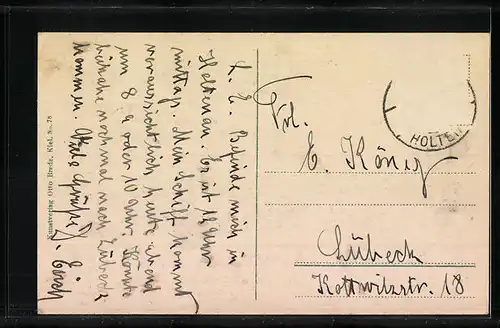 L. E. Befinde mich in
Holtenau. Es ist 12 Uhr
mittag. Mein Schiff kommt
voraussichtlich heute abend
um 8, 9 oder 10 Uhr. Könnte
beinahe noch mal nach Lübeck
kommen. Viele Grüße Erich
Frl.
E. König
Lübeck
Kottwitzstr. 18
HOLTEN
Kunstverlag Otto Brede, Kiel. No. 78